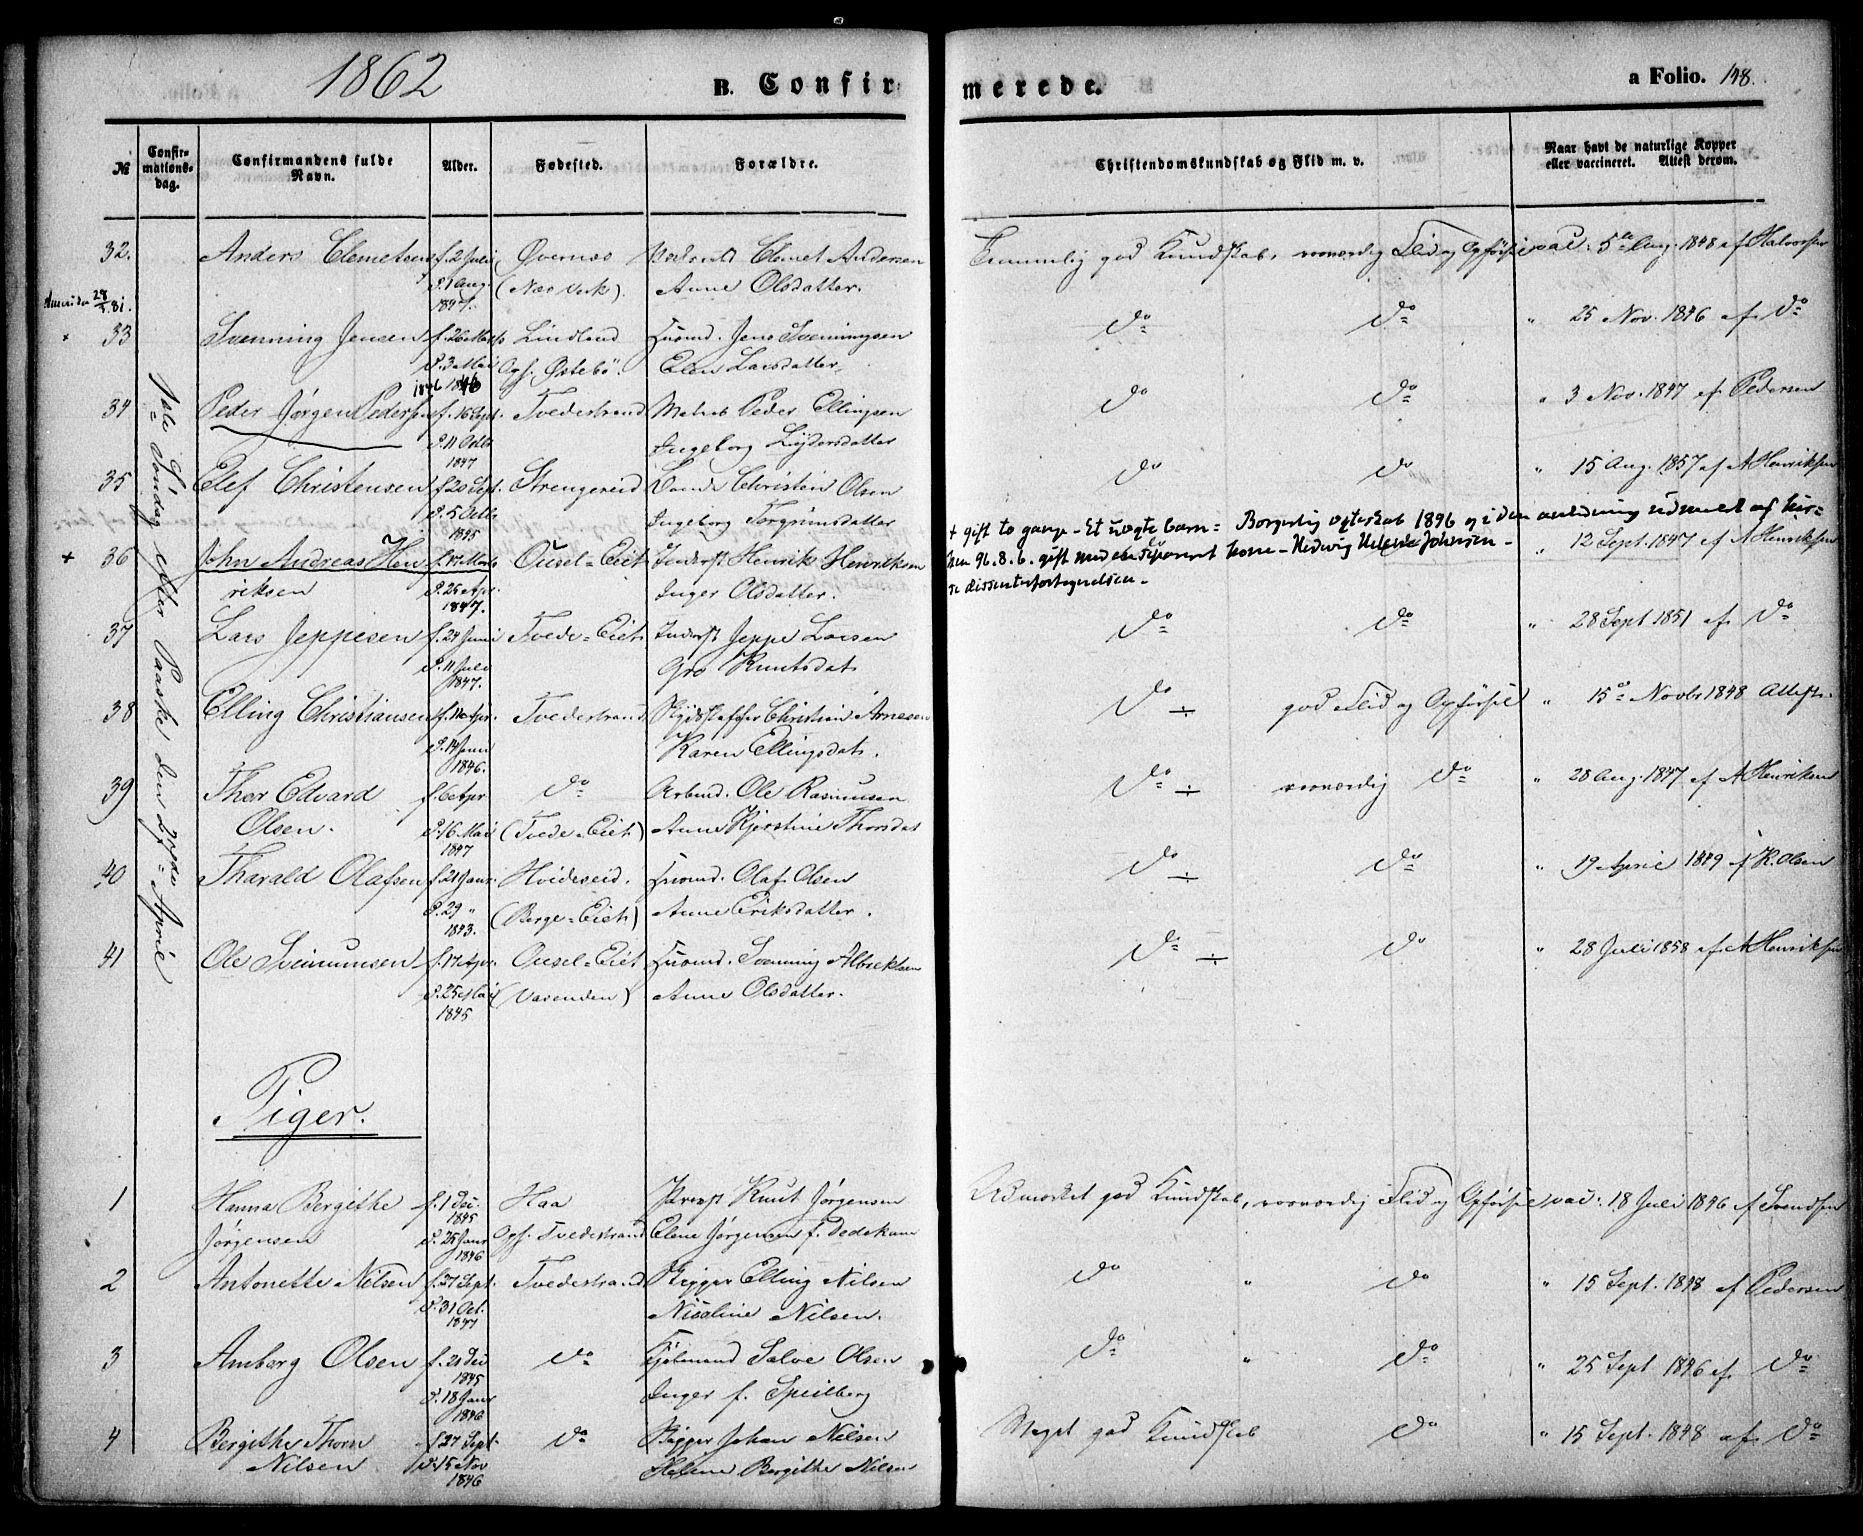 1862
B. Confirmerede.
a Folio. 148.
№
Confirmationsdag.
Confirmandens fulde Navn.
Alder.
Fødested.
Forældre.
Christendomskundskab og Flid m. v.
Naar havt de naturlige Kopper eller vaccineret. Attest derom.
1ste Søndag efter Paaske den 27de April
32. Anders Clemetsen f. 2 Juli Øvernæs Clemet Andersen
d. 1 Aug. (Næs Verk). Anne Olsdatter.
1847.
Temmelig god Kundskab, roesværdig Flid og Opførsel vac: 5te Aug. 1848 af Halvorsen
28/3.81.
33 Svenning Jensen f. 26 Marts Lindland Huusmd. Jens Svenningsen
d. 3 Mai Opf. Østebö. Elen Larsdatter,
1846 1846
do do " 25 Nov. 1846 af do
34 Peder Jørgen Pedersen f. 16 Sept. Tvedestrand Matros Peder Ellingsen
d. 11 Octb Ingeborg Lydersdatter
1847
do do " 3 Nov. 1847 af Pedersen
35 Elef Christensen f. 20 Sept. Strengereid Christen Olsen
d. 5 Octb Ingeborg Torgrimsdatter
1845
do do " 15 Aug. 1857 af A Henriksen
+ gift to gange - Et uægte barn = Borgerlig ægteskab 1896 og i den anledning udmeldt af kir-
ken 96.8.6. gift med en separert kone - Hedwig Johnsen -
se dissenterfortegnelsen -
+ 36 John Andreas Hen f. 17 Marts Ousel=Eiet Inderst Henrik Henriksen
riksen d. 25 Apr. Inger Olsdatter.
1847.
" 12 Sept. 1847 af A Henriksen
37 Lars Jeppesen f. 24 Juni Tvede=Eiet Inderst Jeppe Larsen
d. 11 Juli Gro Knutsdat.
1847.
do do " 28 Sept 1851 af do
38 Elling Christiansen f. 11 Apr. Tvedestrand Skydsskaffer Christian Arnesen
d. 14 Juni Karen Ellingsdat.
1846.
do ÷ god Flid og Opførsel " 15de Novbr 1848 Attest.
39 Thor Edvard f. 6 Apr do Arbmd. Ole Rasmussen
Olsen. d. 16 Mai (Tvede=Eiet) Anne Kjerstine Thorsdat
1847
do ÷ roesværdig do " 28 Aug. 1847 af A Henriksen
40 Tharald Olafsen f. 21 Janr. Hvideseid. Huusmd. Olaf Olsen
d. 29 " (Berge=Eiet) Anne Eriksdatter.
1843.
do ÷ do " 19 April 1849 af K. Olsen
41 Ole Svenumsen f. 17 Apr. Ousel=Eiet Huusmd. Svenning Albrektsen
d. 25 Mai (Varenden) Anne Olsdatter.
1845
do ÷ do " 28 Juli 1858 af A Henriksen
Piger.
1 Hanna Bergithe f. 1 Dec. Haa Provst Knut Jørgensen
1845
Jørgensen d. 25 Janr Opf. Tvedestrand Elene Jørgensen f. Dedekam
1846
Udmærket god Kundskab, roesværdig Flid og Opførsel vac: 18 Juli 1846 af Svendsen
2 Antonette Nilsen f. 27 Sept. Tvedestrand Skipper Elling Nilsen
d. 31 Oct. Nicoline Nilsen.
1847
do " do " 15 Sept. 1848 af Pedersen
3 Amborg Olsen f. 21 Dec do Salve Olsen
1845
d. 18 Janr Inger f. Speilberg
1846
do " do " 25 Sept 1846 af do
4 Bergithe Thorn f. 27 Sept do Skipper Johan Nilsen
Nilsen d. 15 Nov Helene Bergithe Nilsen
1846
Meget god Kundskab do " 15 Sept. 1848 af do